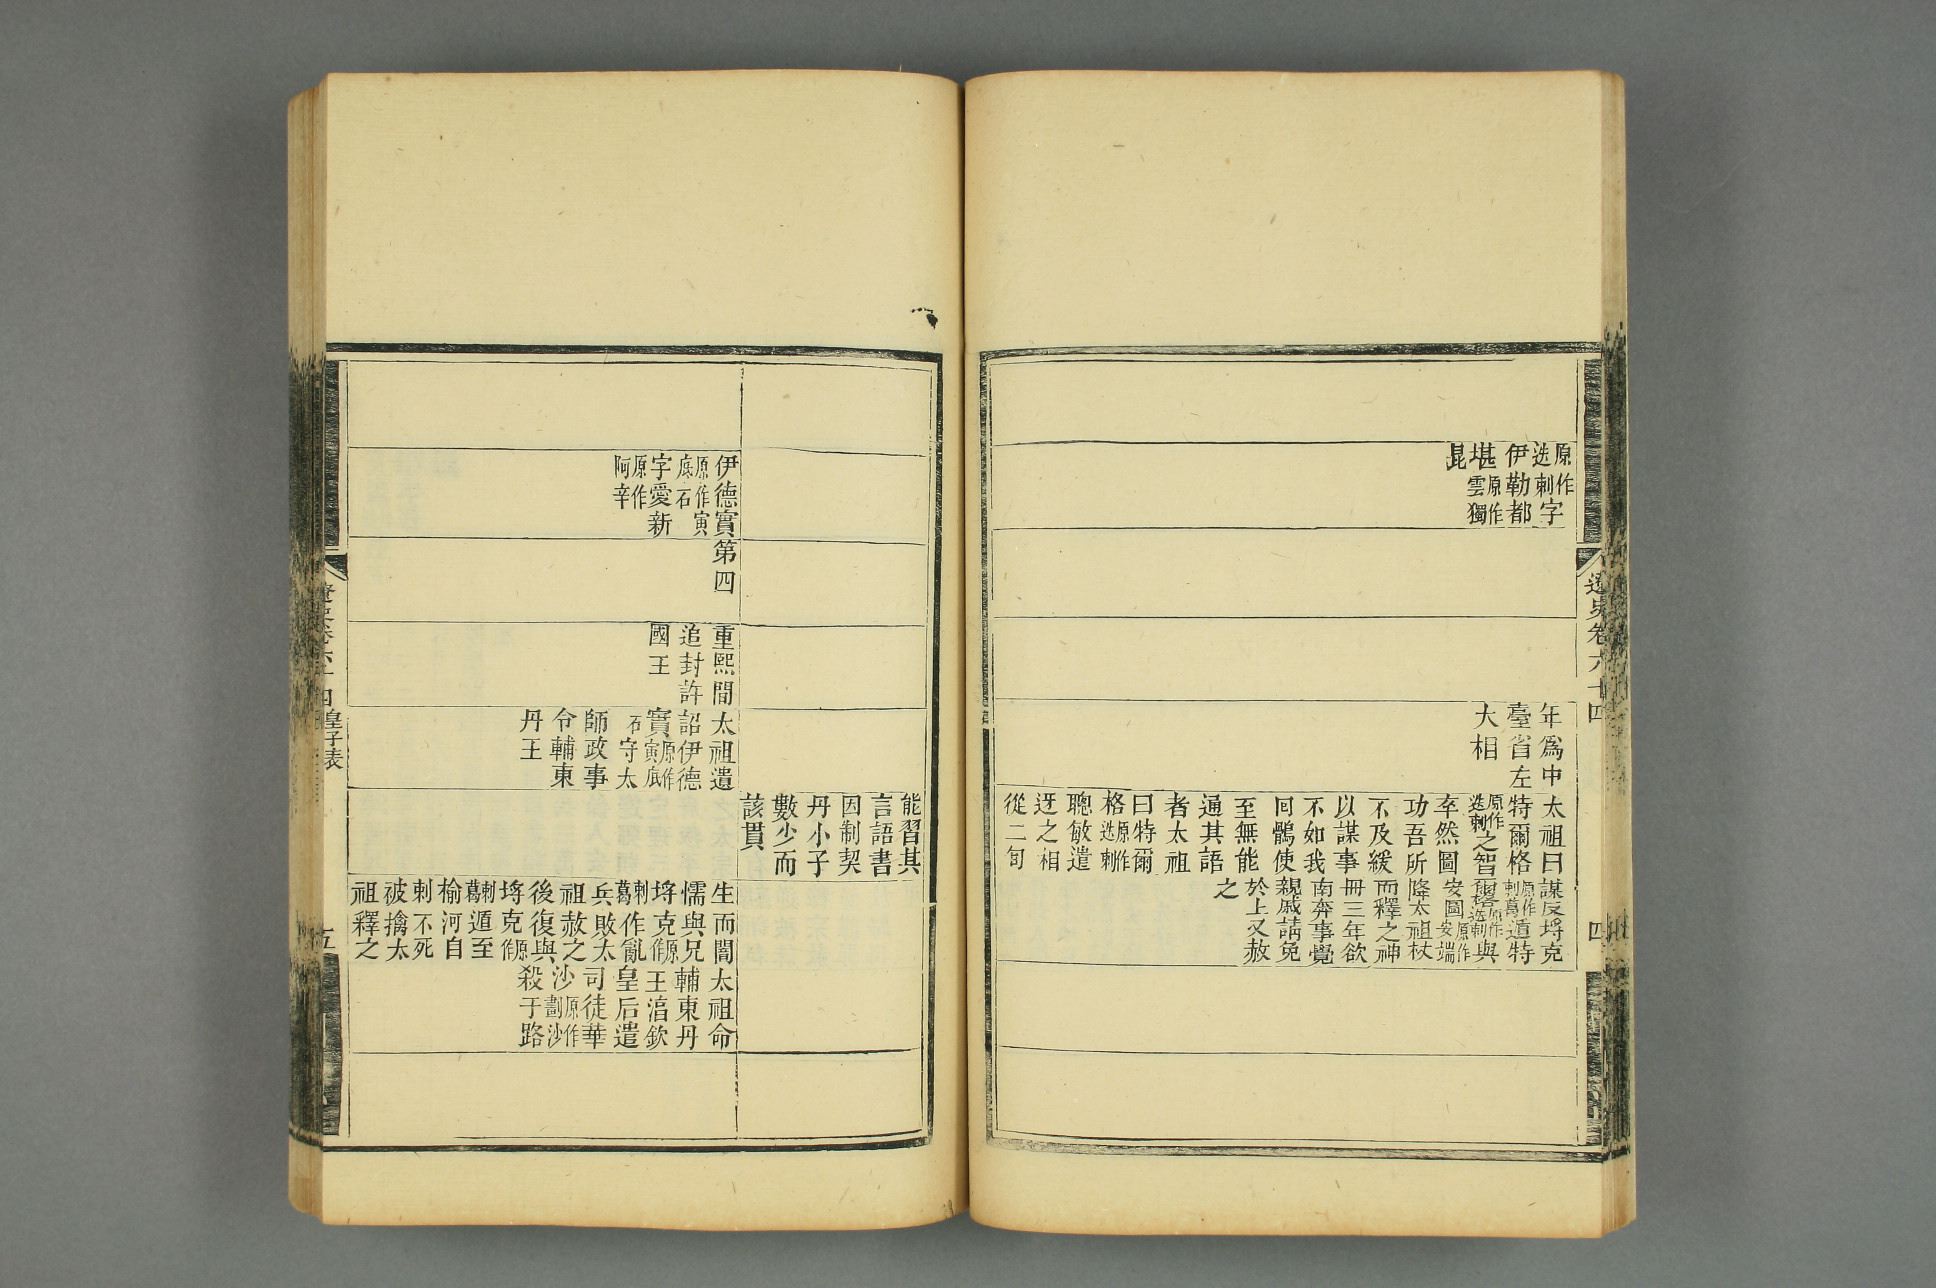 遼史卷六十四
四
原作迭剌字
伊勒都
堪原作雲獨
昆
年爲中
臺省左
大相
太祖曰
特爾格
原作迭剌之智
卒然圖
功吾所
不及緩
以謀事
不如我
囘鶻使
至無能
通其語
者太祖
曰特爾
格原作迭剌
聰敏遣
迓之相
從二旬
謀反埒克
原作剌葛遁特
爾格原作迭剌與
安圖原作安端
降太祖杖
而釋之神
冊三年欲
南奔事覺
親戚請免
於上又赦
之
能習其
言語書
因制契
丹小子
數少而
該貫
伊德實
原作寅底石
字愛新
原作阿辛
第四
重熙間
追封許
國王
太祖遣
詔伊德
實原作寅底
石守太
師政事
令輔東
丹王
生而闇
懦與兄
埒克原作
剌葛作亂
兵敗太
祖赦之
後復與
埒克原作
剌葛遁至
榆河自
刺不死
被擒太
祖釋之
太祖命
輔東丹
王淯欽
皇后遣
司徒華
沙原作劃沙
殺于路
遼史卷六十四 皇子表
五